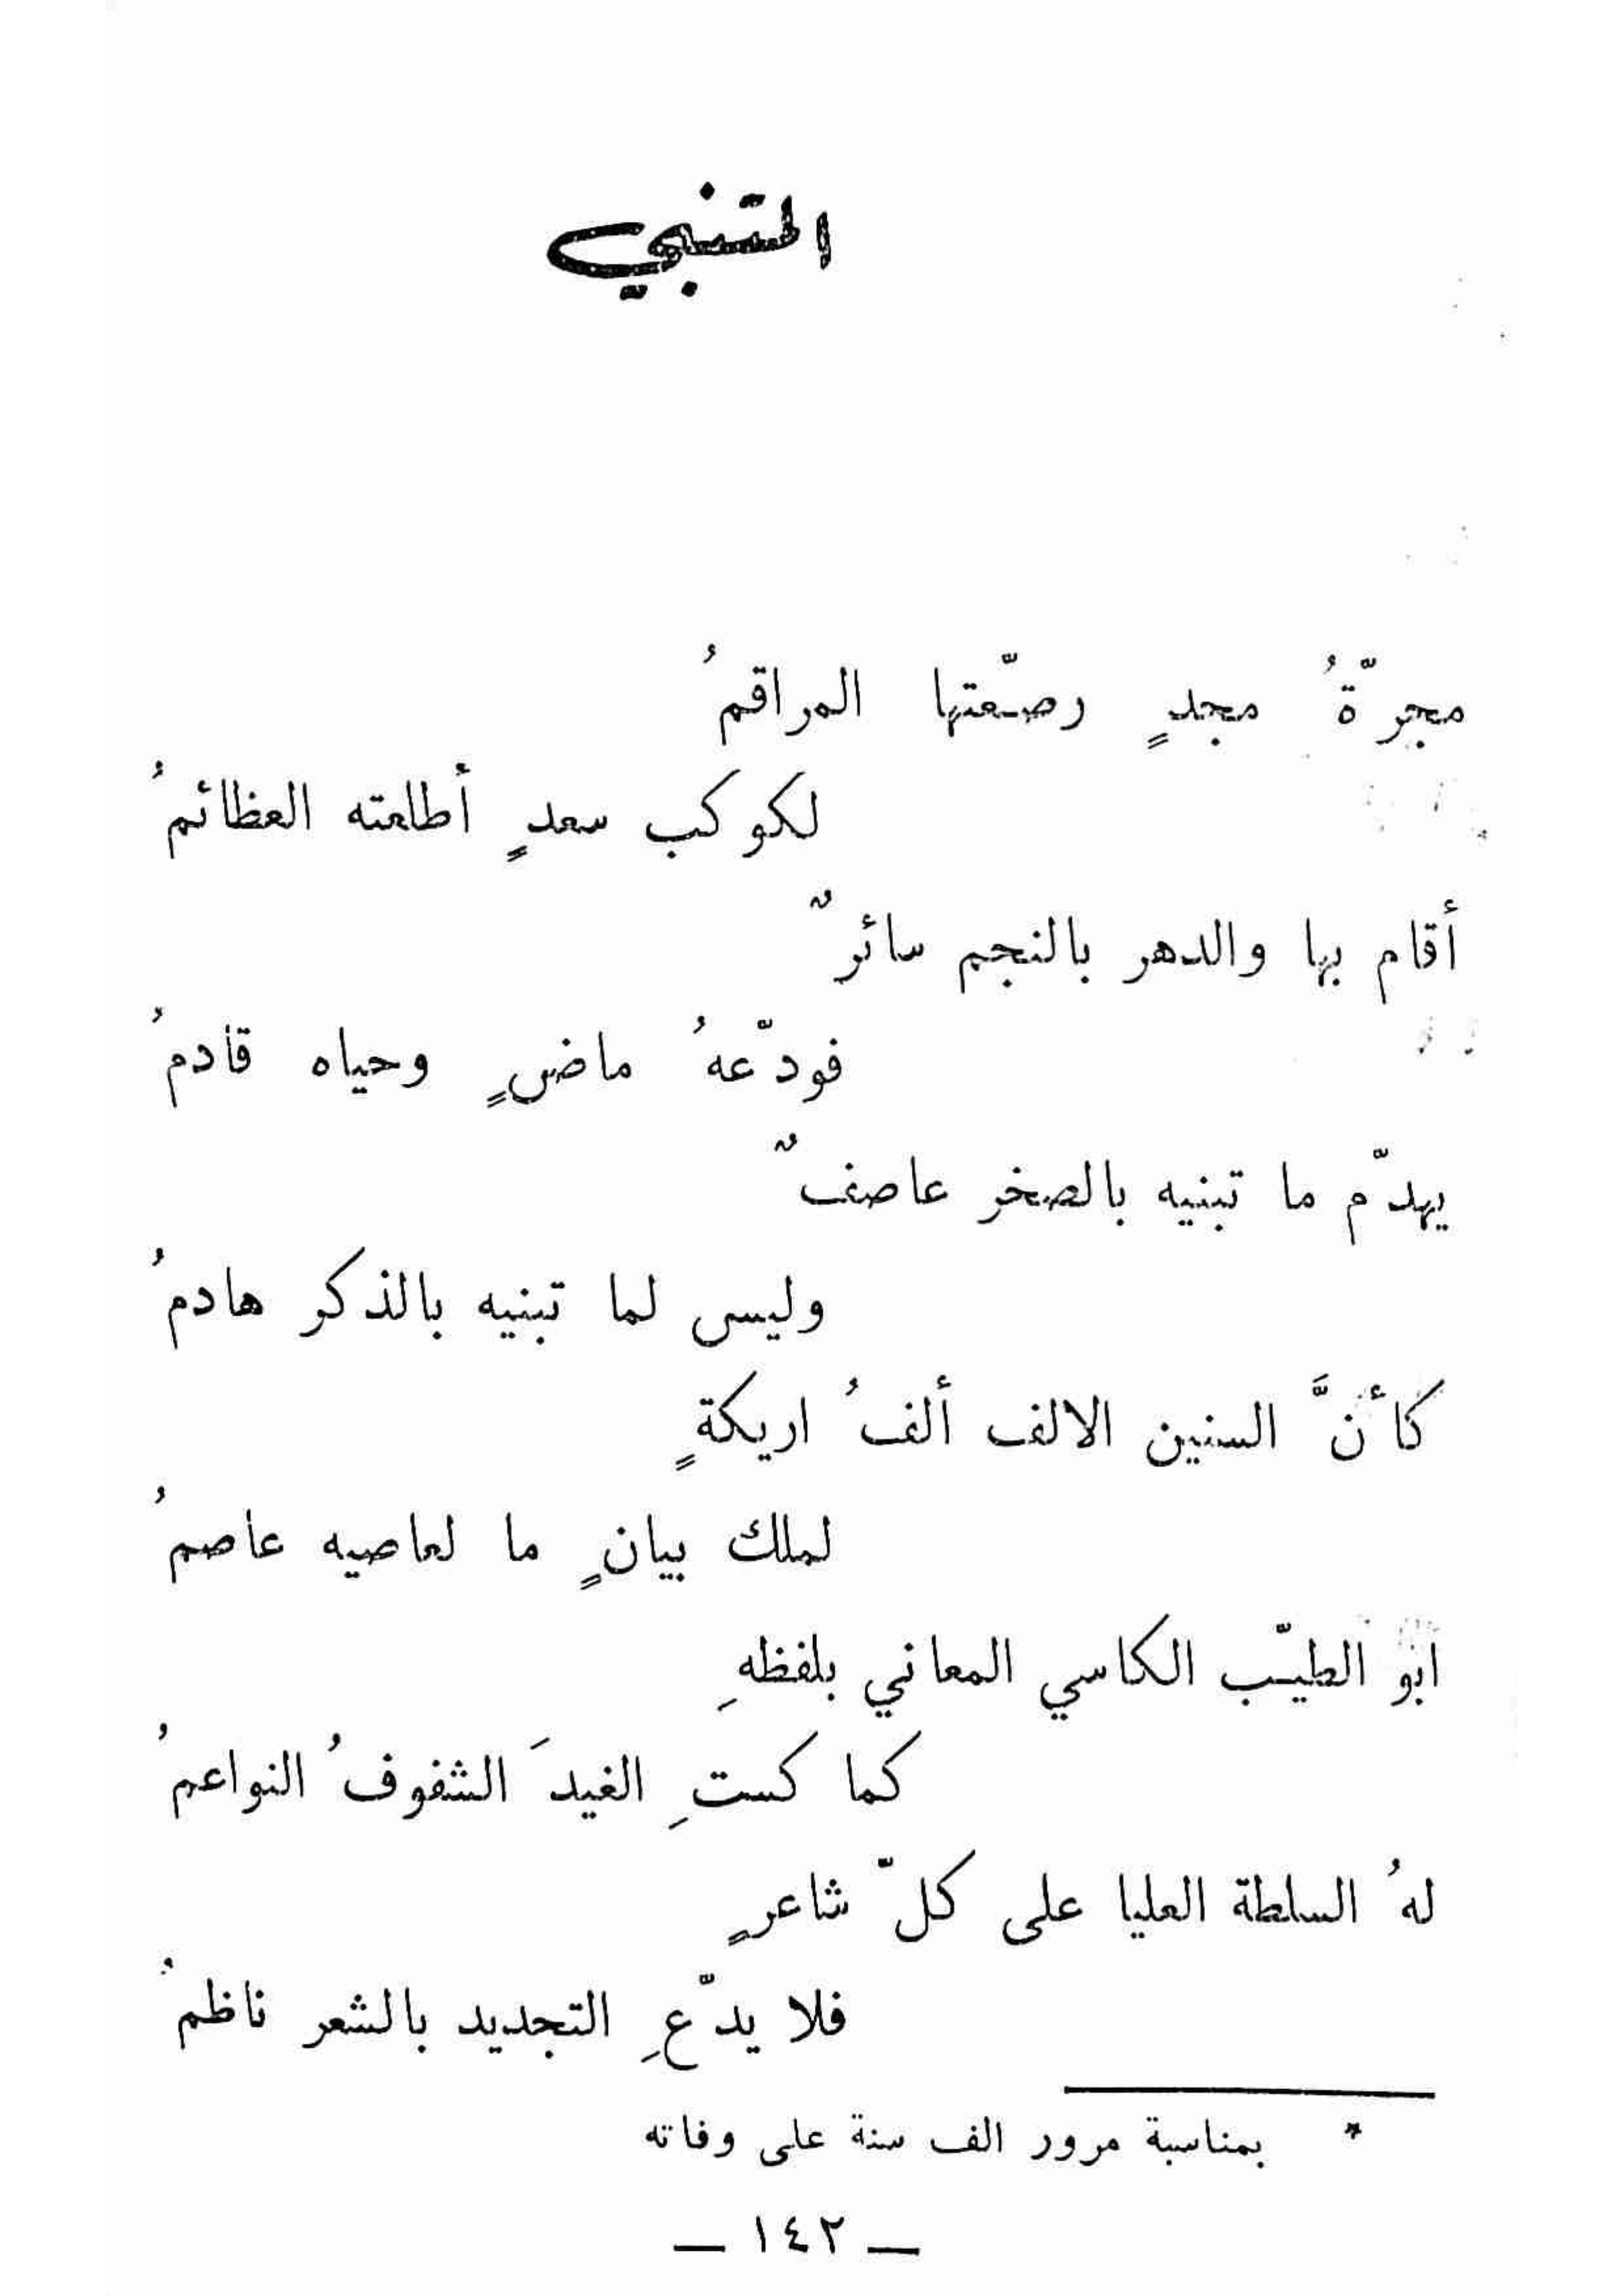 المتنبي
مجرّةُ مجدٍ رصّعتها المراقمُ
لكوكب سعدٍ أطلعته العظائمُ
أقام بها والدهر بالنجم سائرٌ
فودّعهُ ماضٍ وحياه قادمُ
يهدّم ما تبنيه بالصخر عاصفٌ
وليس لما تبنيه بالذكر هادمُ
كأنَّ السنين الالف ألفُ اريكةٍ
لملك بيانٍ ما لعاصيه عاصمُ
ابو الطيّب الكاسي المعاني بلفظهِ
كما كستِ الغيدَ الشفوفُ النواعمُ
لهُ السلطة العليا على كلّ شاعرٍ
فلا يدّعِ التجديد بالشعر ناظمُ
* بمناسبة مرور الف سنة على وفاته
— ١٤٢ —